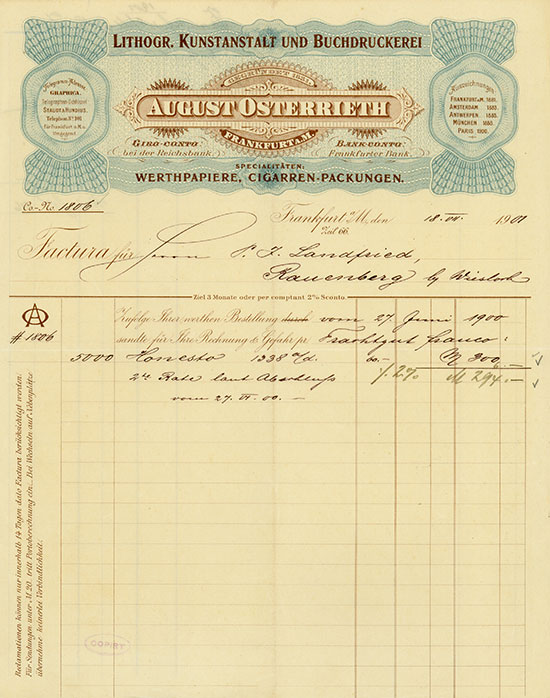 LITHOGR. KUNSTANSTALT UND BUCHDRUCKEREI
GEGRÜNDET
AUGUST OSTERRIETH
FRANKFURT A.M.
Telegramm-Adresse:
GRAPHICA.
Telegraphen-Schlüssel
STAUDT & HUNDIUS.
Telephon
für Frankfurt a. M. u.
Auszeichnungen
FRANKFURT A. M. 1881.
AMSTERDAM 1883.
ANTWERPEN 1885.
MÜNCHEN 1888.
PARIS 1900.
GIRO-CONTO
bei der Reichsbank.
BANK-CONTO
Frankfurter Bank.
SPECIALITÄTEN:
WERTHPAPIERE, CIGARREN-PACKUNGEN.
Co-No. 1806
Frankfurt a/M. den 18. VII. 1901
Zeil 66.
Factura für Herrn P. J. Landfried,
Rauenberg by Wiesloch
Ziel 3 Monate oder per comptant 2% Sconto.
AO
# 1806
Zufolge Ihrer werthen Bestellung durch vom 27 Juni 1900
sandte für Ihre Rechnung & Gefahr pr. Frachtgut franco:
5000 Honesta 1338 60.- M 300.-
2te Rate laut Abschluß % 2% M 294.-
vom 27. VI. 00.-
Reclamationen können nur innerhalb 14 Tagen dato Factura berücksichtigt werden.
Für Sendungen unter M. 20. tritt Portoberechnung ein. Bei Wechseln auf Nebenplätze
übernehme keinerlei Verbindlichkeit.
COPIRT